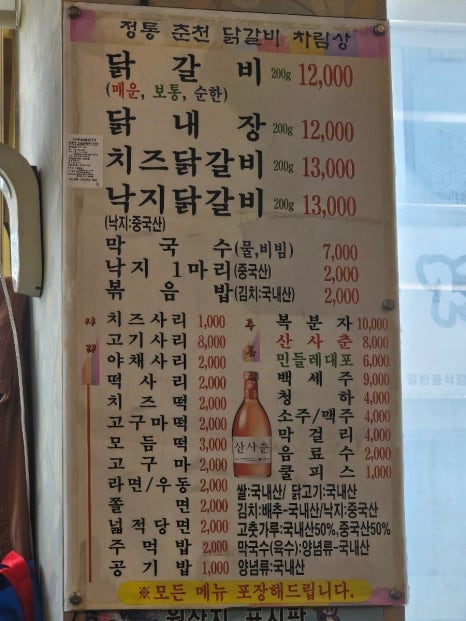 정통 춘천 닭갈비 차림상
닭 갈 비 200g 12,000
(매운, 보통, 순한)
닭 내 장 200g 12,000
치즈닭갈비 200g 13,000
낙지닭갈비 200g 13,000
(낙지:중국산)
막 국 수 (물,비빔) 7,000
낙지 1마리 (중국산) 2,000
볶 음 밥 (김치:국내산) 2,000
사리
치즈사리 1,000
고기사리 8,000
야채사리 2,000
떡 사 리 2,000
치 즈 떡 2,000
고구마떡 2,000
모 듬 떡 3,000
고 구 마 2,000
라면/우동 2,000
쫄 면 2,000
넓적당면 2,000
주 먹 밥 2,000
공 기 밥 1,000
주류
복 분 자 10,000
산 사 춘 8,000
민들레대포 6,000
백 세 주 9,000
청 하 4,000
소주/맥주 4,000
막 걸 리 4,000
음 료 수 2,000
쿨 피 스 1,000
산사춘
쌀:국내산/ 닭고기:국내산
김치:배추-국내산/낙지:중국산
고춧가루:국내산50%,중국산50%
막국수(육수):양념류-국내산
양념류:국내산
※모든 메뉴 포장해드립니다.
원산지 표시판
일반음식점